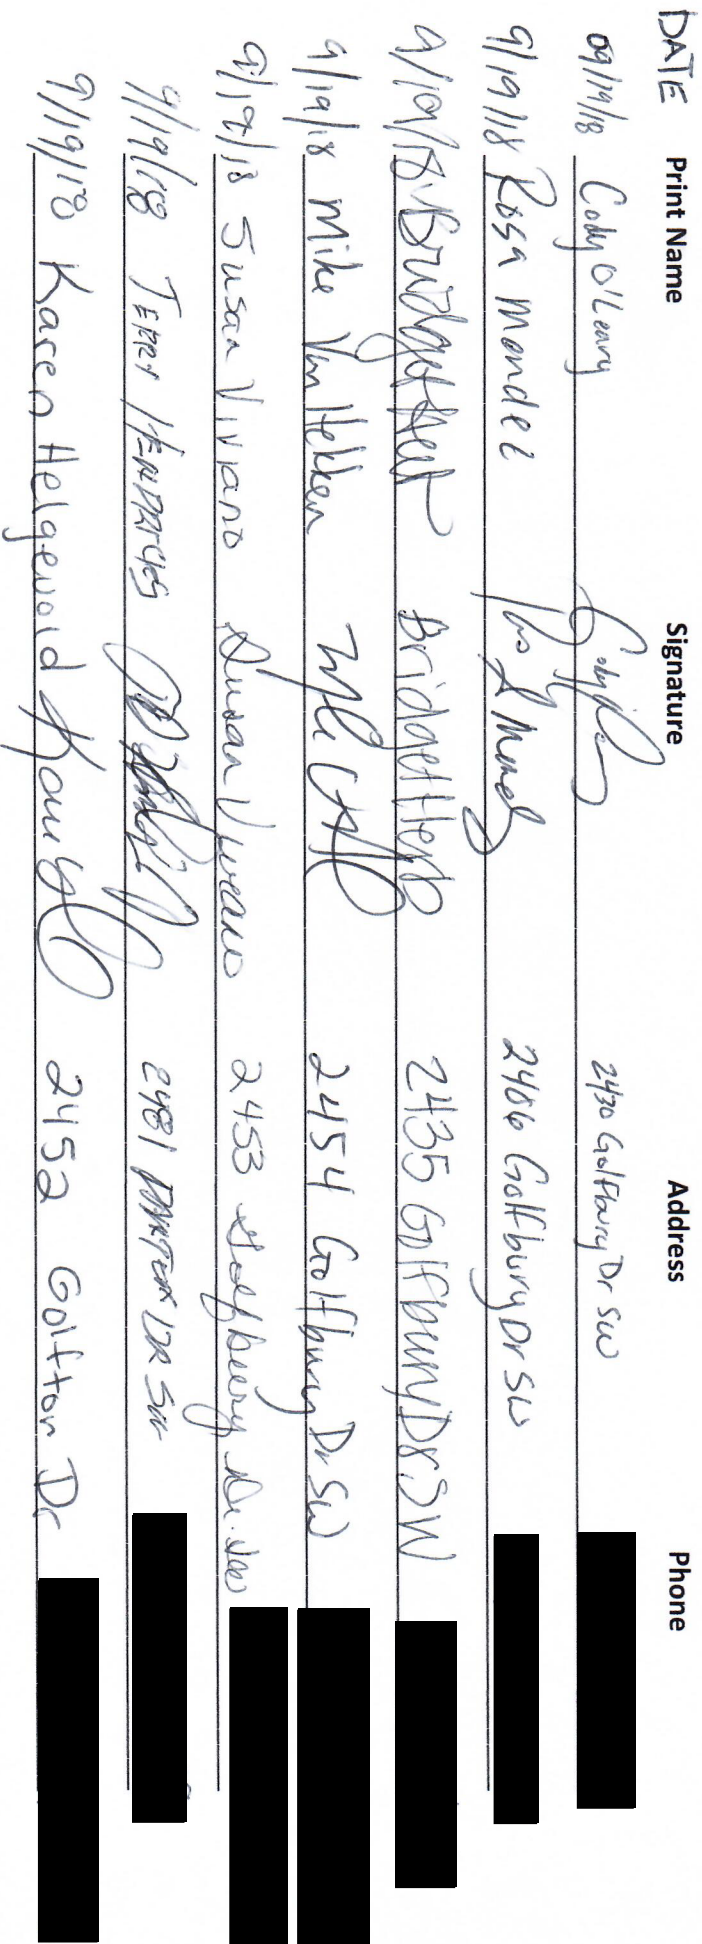 DATE Print Name Signature Address Phone
09/19/18 Cody O'Leary 2430 Golfbury Dr SW
9/19/18 Rosa Mendez 2406 Golfbury Dr SW
9/19/18 Bridget Bridget Herb 2435 Golfbury Dr SW
9/19/18 Mike Van Hekken 2454 Golfbury Dr SW
9/19/18 Susan Viviano Susan Viviano 2453 Golfbury Dr. SW
9/19/18 TERRY 2481 DR SW
9/19/18 Karen Helgewold 2452 Dr